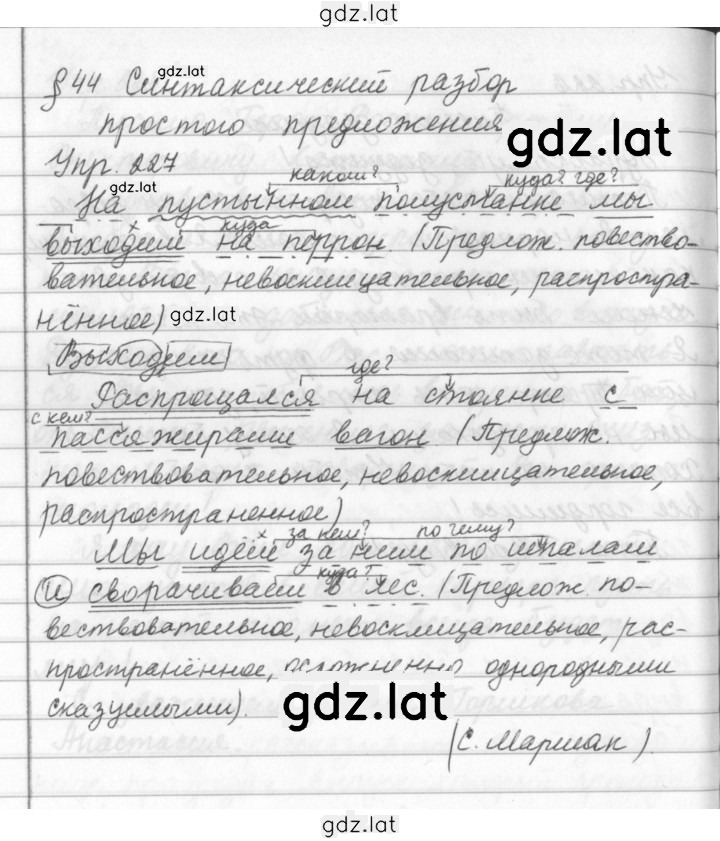 gdz.lat
§ 44 Синтаксический разбор
gdz.lat
простого предложения
gdz.lat
Упр. 227
каком? куда? где?
gdz.lat
На пустынном полустанке мы
куда
выходим на перрон (Предлож. повество-
вательное, невосклицательное, распростра-
нённое)
gdz.lat
Выходим
где?
Распрощался на стоянке с
с кем?
пассажирами вагон (Предлож.
повествовательное, невосклицательное,
распространенное)
за кем? по чему?
Мы идём за ним по шпалам
куда?
и сворачиваем в лес. (Предлож. по-
вествовательное, невосклицательное, рас-
пространённое, однородными
сказуемыми).
gdz.lat
(С. Маршак).
gdz.lat